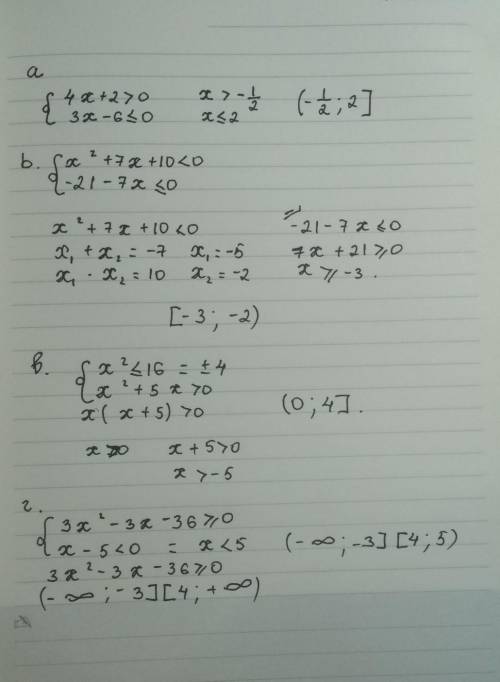 a
{ 4x+2>0 x>-1/2 (-1/2; 2]
3x-6≤0 x≤2
b. { x²+7x+10<0
-21-7x≤0
x²+7x+10<0 -21-7x≤0
x₁+x₂=-7 x₁=-5 7x+21≥0
x₁·x₂=10 x₂=-2 x≥-3.
[-3; -2)
в. { x²≤16 = ±4
x²+5x>0
x(x+5)>0 (0; 4].
x>0 x+5>0
x>-5
г.
{ 3x²-3x-36≥0
x-5<0 = x<5 (-∞; -3][4; 5)
3x²-3x-36≥0
(-∞; -3][4; +∞)